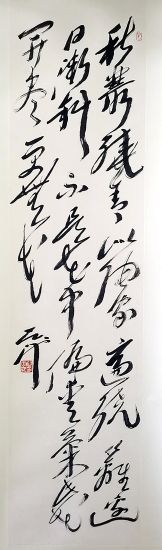 秋叢繞舍似陶家遍繞籬邊
日漸斜不是花中偏愛菊此花
開盡更無花